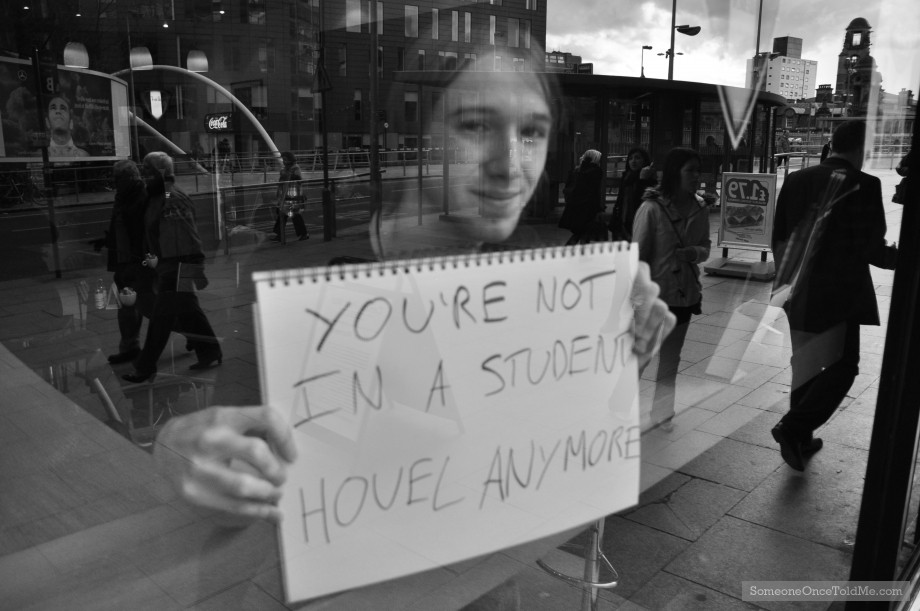 YOU'RE NOT
IN A STUDENT
HOVEL ANYMORE
Coca-Cola
£1.79
SomeoneOnceToldMe.com